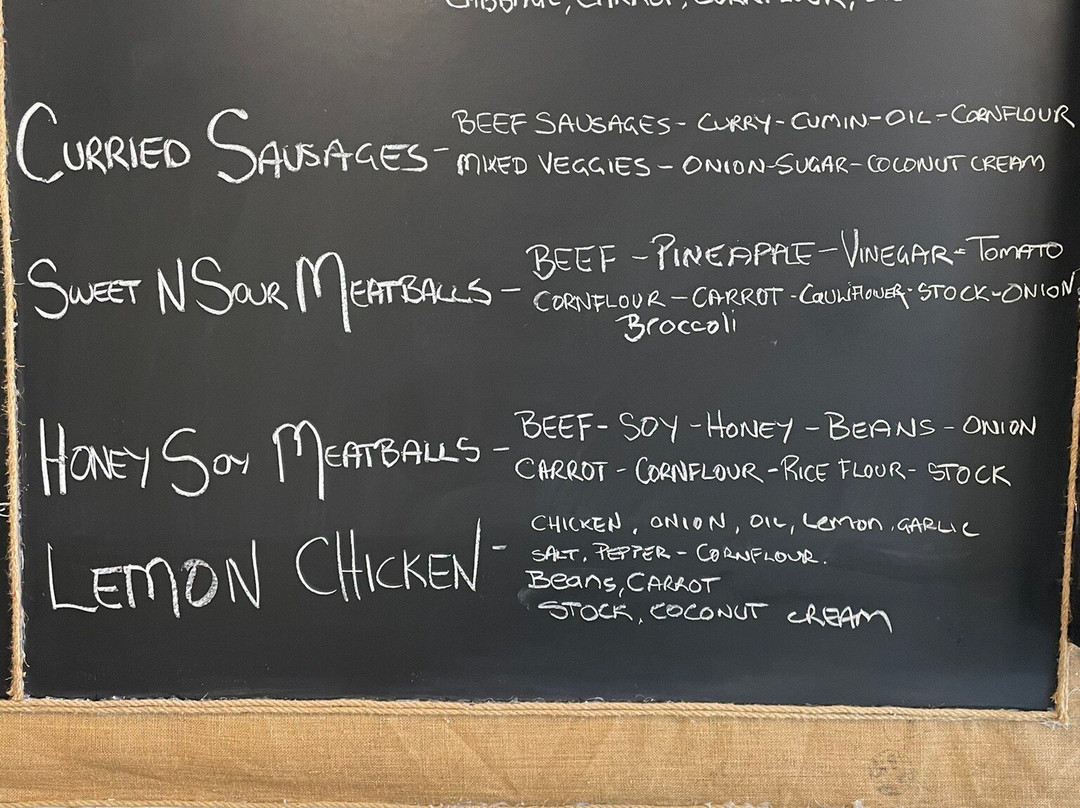 CABBAGE, CARROT, CORNFLOUR,
CURRIED SAUSAGES - BEEF SAUSAGES - CURRY - CUMIN - OIL - CORNFLOUR
MIXED VEGGIES - ONION - SUGAR - COCONUT CREAM
SWEET N SOUR MEATBALLS - BEEF - PINEAPPLE - VINEGAR - TOMATO
CORNFLOUR - CARROT - CAULIFLOWER - STOCK - ONION
Broccoli
HONEY SOY MEATBALLS - BEEF - SOY - HONEY - BEANS - ONION
CARROT - CORNFLOUR - RICE FLOUR - STOCK
LEMON CHICKEN - CHICKEN, ONION, OIL, Lemon, GARLIC
SALT, PEPPER - CORNFLOUR.
Beans, CARROT
STOCK, COCONUT CREAM